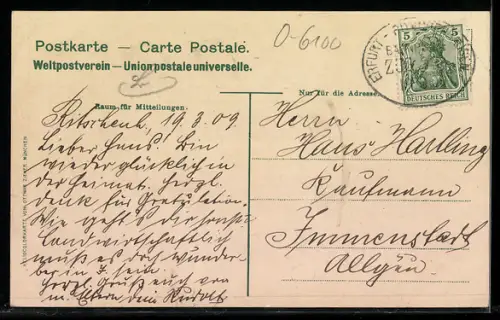 O-6100
Postkarte — Carte Postale.
Weltpostverein — Union postale universelle.
Raum für Mitteilungen.
Nur für die Adresse.
5 5
DEUTSCHES REICH
ERFURT
BAHNPOST
19.3.09.
Lieber Hans! Bin
wieder glücklich in
der Heimat. Herzl.
Dank für Gratulation.
Wie geht's dir sonst?
Landwirtschaftlich
muß es das wunder-
bar in J. sein.
Herzl. Gruß auch von
m. Eltern Dein Rudolf
Herrn
Hans Hartling
Kaufmann
Immenstadt
Allgäu.